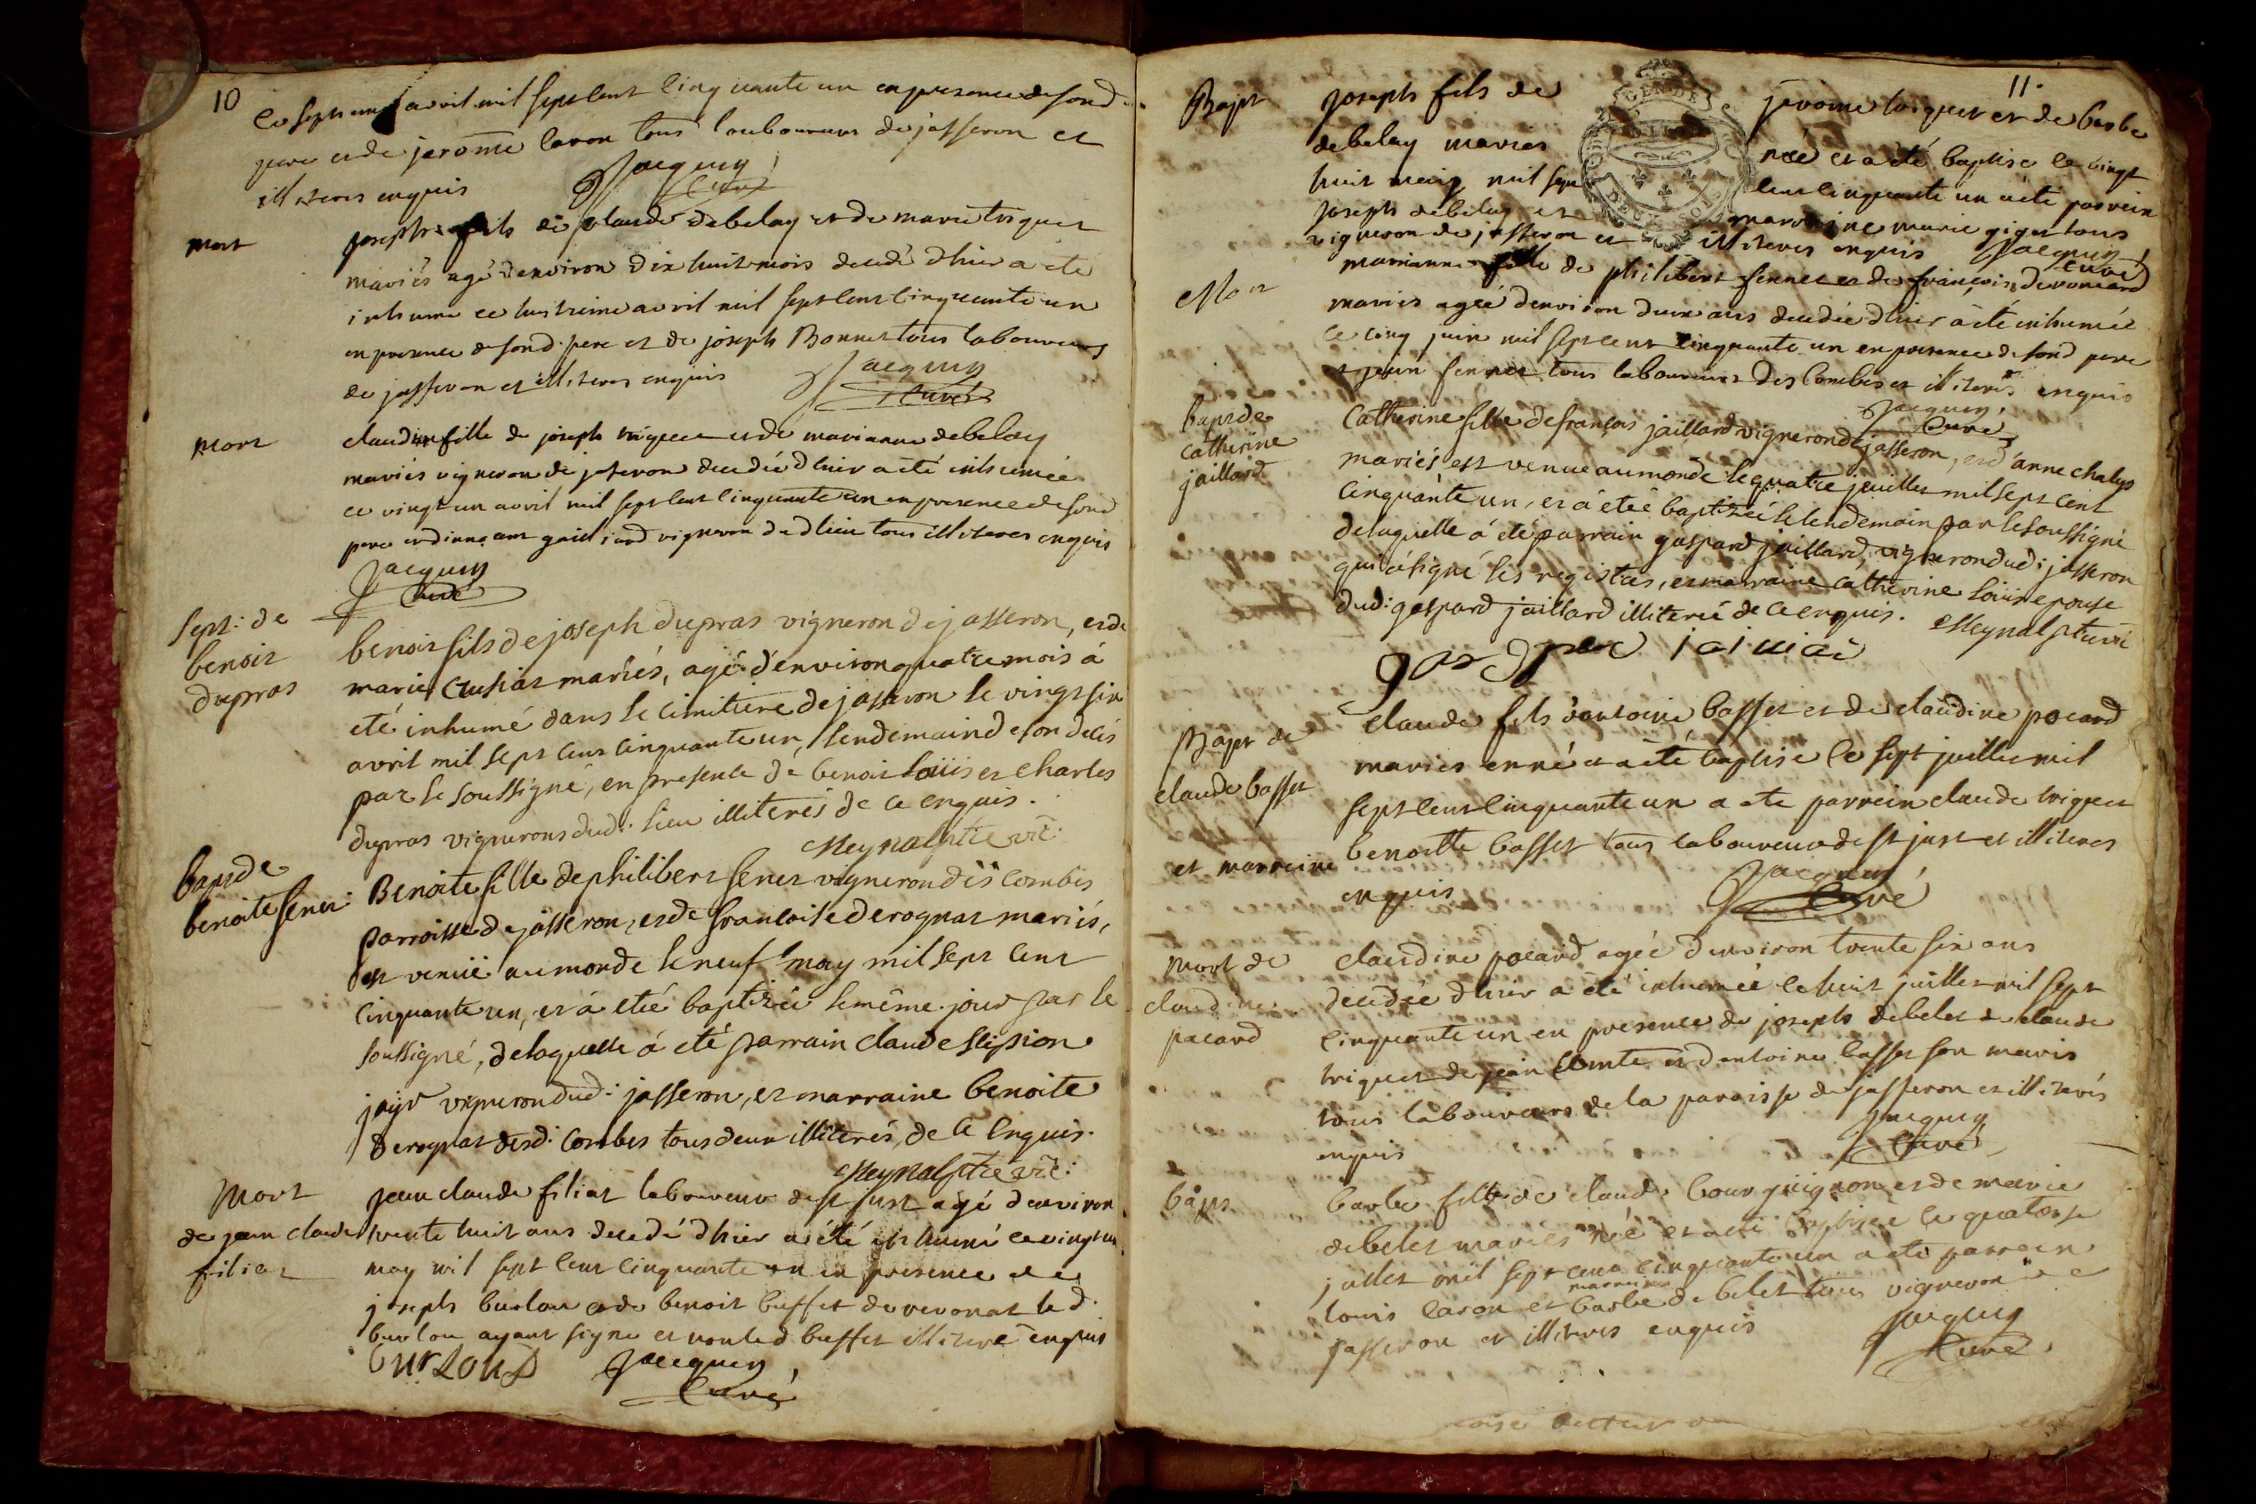 10
ce septieme avril mil sept cent cinquante un en presence de sond.
pere et de jerome caron tous laboureurs de jasseron et
illiteres enquis Jacquin
curé
mort
joseph fils de claude debelay et de marie triquet
mariés agé denviron dix huit mois decedé dhier a eté
inhumé ce huitieme avril mil sept cent cinquante un
en presence de sond. pere et de joseph Bonnet tous laboureurs
de jasseron et illiteres enquis Jacquin
curé
mort
claudine fille de joseph triquet et de marianne debelay
mariés vigneron de jasseron decedée dhier a eté inhumée
ce vingt un avril mil sept cent cinquante un en presence de sond
pere et vigneron dud lieu tous illiteres enquis
Jacquin
curé
sept: de
benoit
dupras
benoit fils de joseph dupras vigneron de jasseron, et de
marie mariés, agé d'environ quatre mois á
eté inhumé dans le cimitiere de jasseron le vingt six
avril mil sept cent cinquante un, lendemain de son decés
par le soussigné, en presence de benoit Loüis et charles
dupras vignerons dud: lieu illiterés de ce enquis.
Meynal ptre vic:
bapt de
benoite senet:
Benoite fille de philibert senet vigneron dës combes
parroisse de jasseron, et de francoise derognat mariés,
est venuë au monde le neuf may mil sept cent
cinquante un, et á etée baptizée le même jour par le
soussigné, de laquelle á eté parrain claude
vigneron dud: jasseron, et marraine benoite
derognat desd: combes tous deux illiterés, de ce enquis.
Meynal ptre vic:
Mort
de jean claude
filiat
jean claude filiat laboureur de st just agé denviron
trente huit ans decedé dhier a été inhumé ce vingt un
may mil sept cent cinquante un en presence de
joseph burlou et de benoit buffet de revonat led.
burlou ayant signe et non led buffet illiteré enquis
burLoud Jacquin
curé
11.
Bapt
joseph fils de jerome triquet et de barbe
debelay mariés née et a eté baptisé le vingt
huit may mil sept cent cinquante un a eté parrein
joseph debelay et marreine marie tous
vigneron de jasseron et illiteres enquis Jacquin
curé
Mort
marianne fille de philibert sennet et de françoise
mariés agée denviron deux ans decedée dhier a été inhumée
ce cinq juin mil sept cent cinquante un en presence de sond pere
et jean sennet tous laboureurs des Combes et illiterés enquis
Jacquin
Curé
bapt de
catherine
jaillard
Catherine fille de françois jaillard vigneron de jasseron, et d'anne chalyo
mariés est venue au monde le quatre juillet mil sept cent
cinquante un, et á etée baptizée le lendemain par le soussigné
de laquelle á eté parrain gaspard jaillard, vigneron dud: jasseron
qui á signé les registres, et marraine catherine Loüis epouse
dud: gaspard jaillard illiterée de ce enquis. Meynal ptre vic
Bapt de
claude basset
claude fils d'antoine basset et de claudine pocard
mariés en né et a eté baptisé le sept juillet mil
sept cent cinquante un a eté parrein claude triquet
et marreine benoitte basset tous laboureurs de st just et illiteres
enquis Jacquin
Curé
Mort de
claudine
pacard
claudine pocard agée denviron trente six ans
decedée dhier a été inhumée le huit juillet mil sept
cinquante un en presence de joseph debelet de claude
triquet de jean comte et dantoine basset son maris
tous laboureurs de la paroisse de jasseron et illiterés
enquis Jacquin
Curé
bapt
barbe fille de claude bourguignon et de marie
debelet mariés née et a eté baptisée le quatorze
jullet mil sept cent cinquante un a eté parrein
louis caron et marreine barbe debelet tous vigneron de
jasseron et illiteres enquis Jacquin
Curé